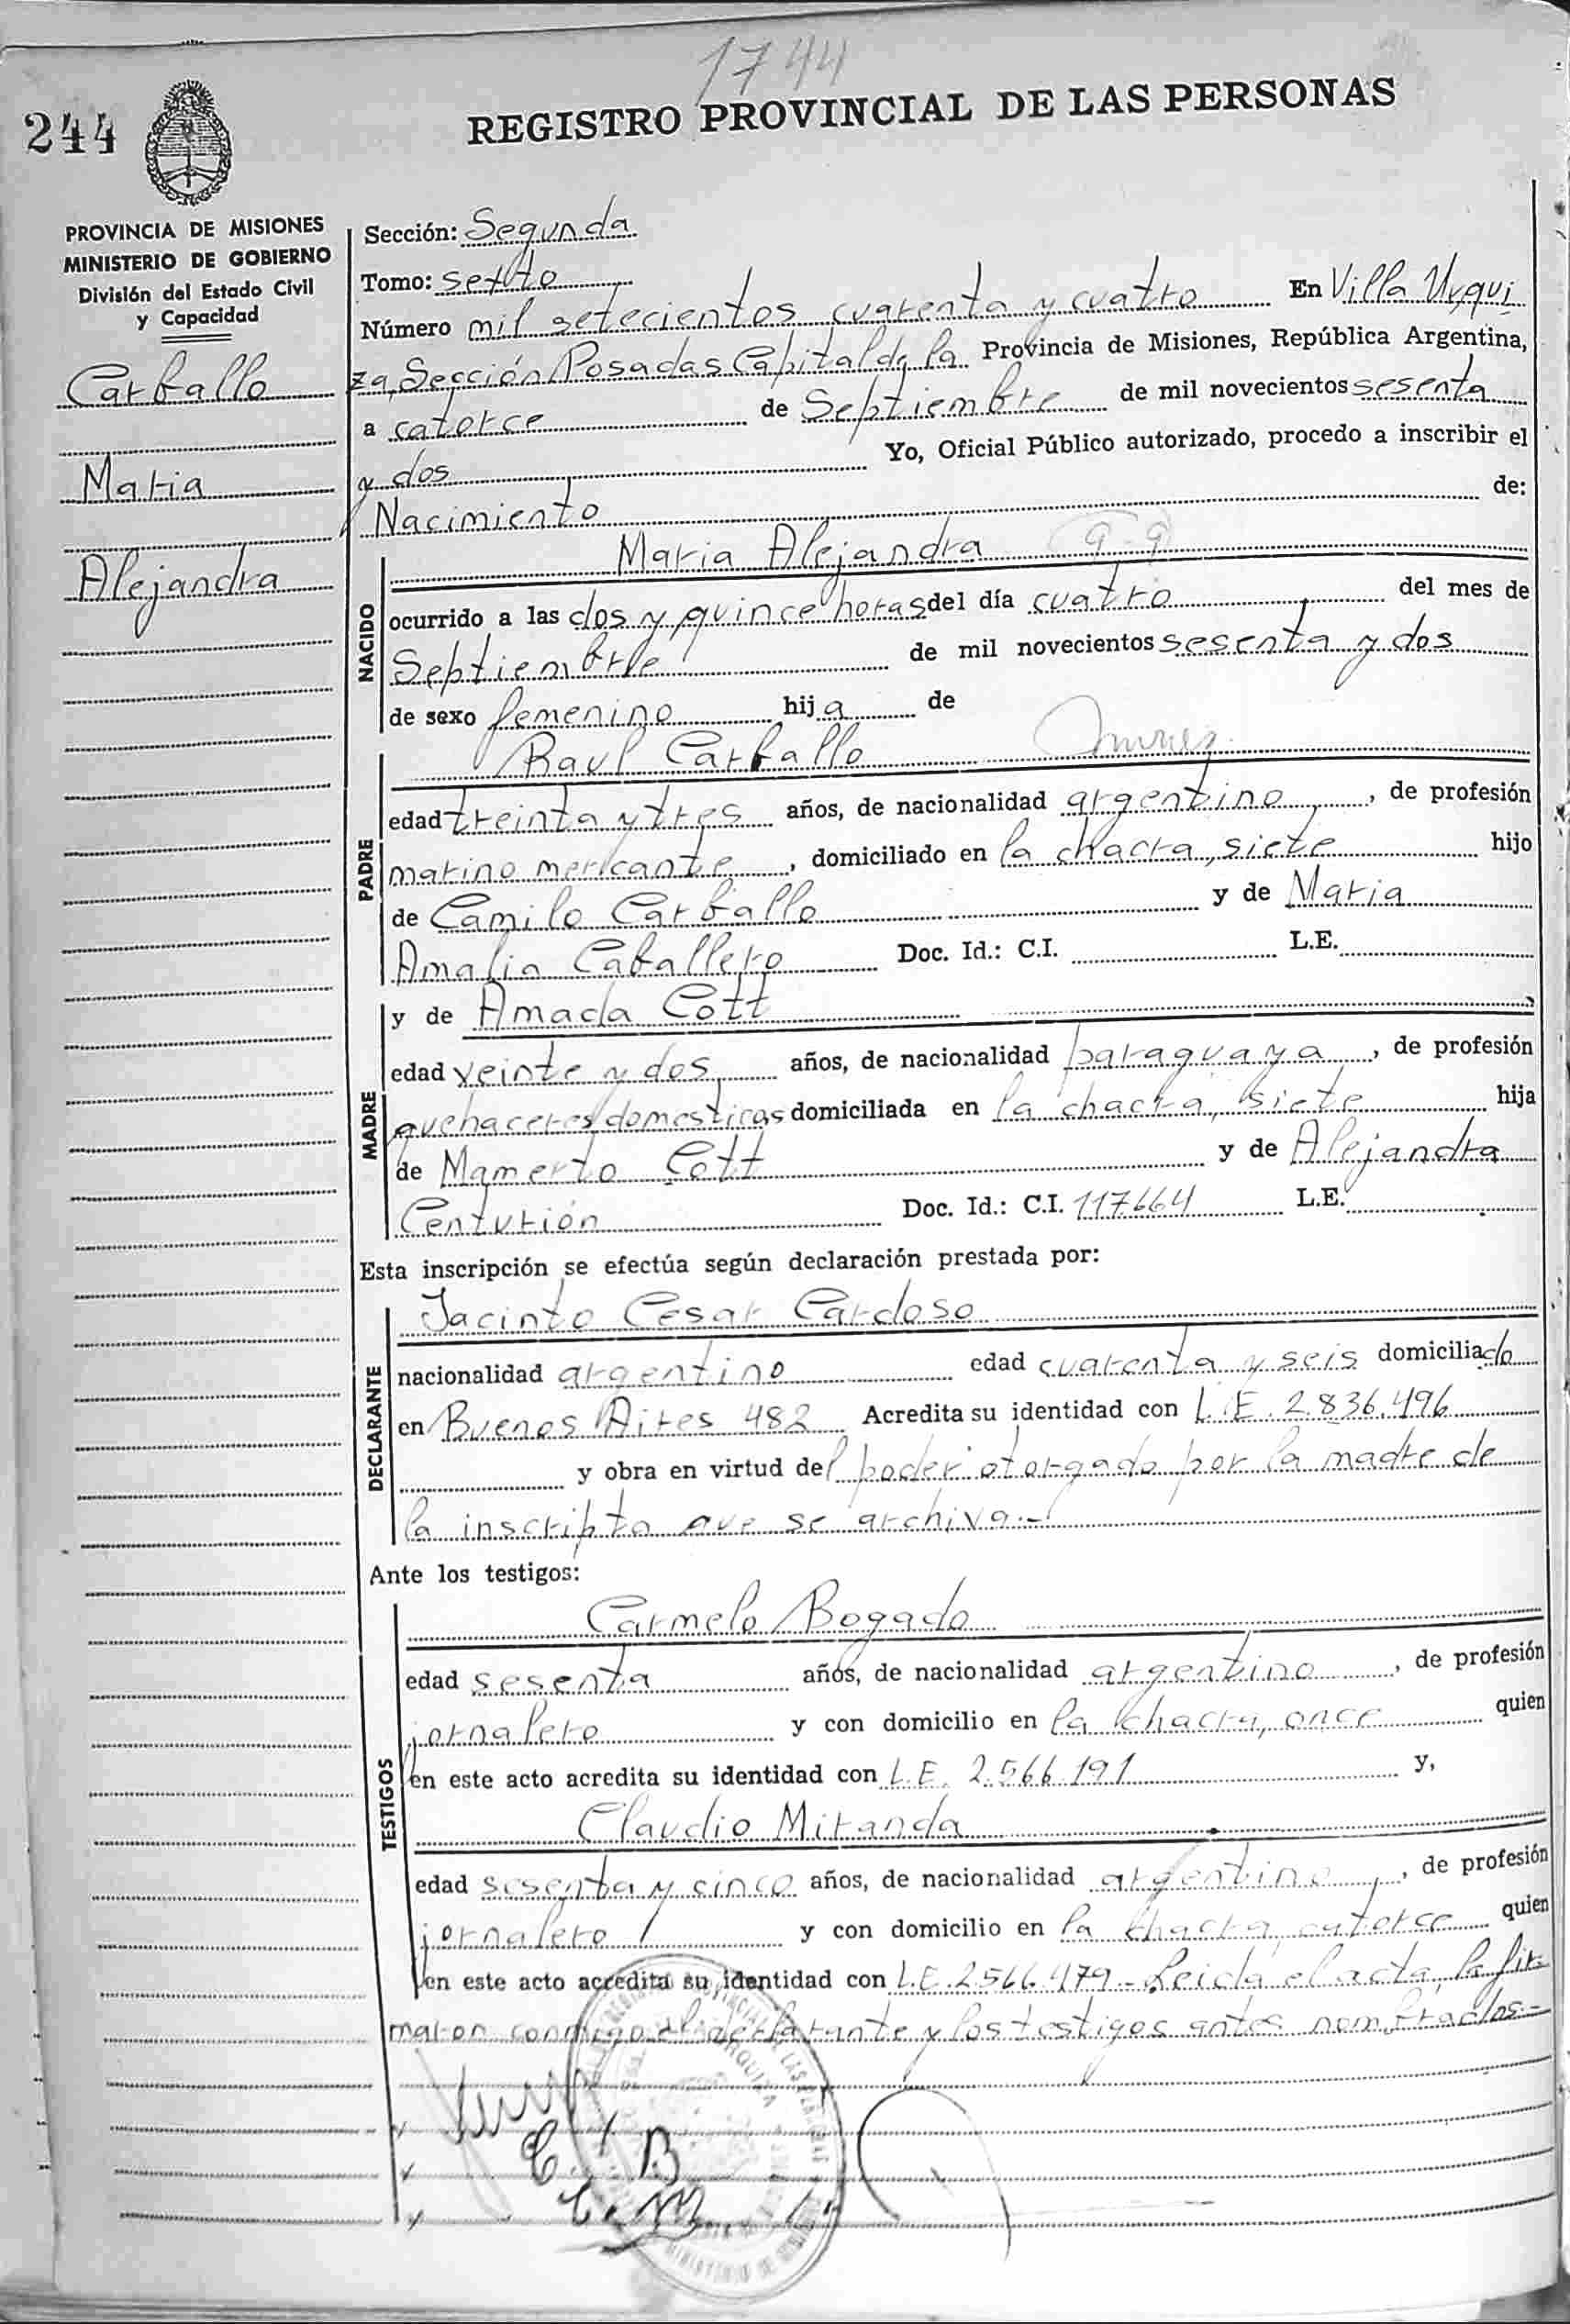 1744
244
REGISTRO PROVINCIAL DE LAS PERSONAS
PROVINCIA DE MISIONES
MINISTERIO DE GOBIERNO
División del Estado Civil
y Capacidad
Carballo
Maria
Alejandra
Sección: Segunda
Tomo: sexto
Número mil setecientos cuarenta y cuatro En Villa Urqui
za, Sección Posadas Capital de la Provincia de Misiones, República Argentina,
a catorce de Septiembre de mil novecientos sesenta
y dos Yo, Oficial Público autorizado, procedo a inscribir el
Nacimiento de:
NACIDO
Maria Alejandra
ocurrido a las dos y quince horas del día cuatro del mes de
Septiembre de mil novecientos sesenta y dos
de sexo femenino hija de
PADRE
Raul Carballo
edad treinta y tres años, de nacionalidad argentino, de profesión
marino mercante, domiciliado en la chacra, siete hijo
de Camilo Carballo y de Maria
Amalia Caballero Doc. Id.: C.I. L.E.
MADRE
y de Amada Cott,
edad veinte y dos años, de nacionalidad paraguaya, de profesión
quehaceres domesticos domiciliada en la chacra, siete hija
de Mamerto Cott y de Alejandra
Centurión Doc. Id.: C.I. 117.664 L.E.
Esta inscripción se efectúa según declaración prestada por:
DECLARANTE
Jacinto Cesar Cardoso
nacionalidad argentino edad cuarenta y seis domiciliado
en Buenos Aires 482 Acredita su identidad con L.E. 2.836.496
y obra en virtud del poder otorgado por la madre de
la inscripta que se archiva.-
Ante los testigos:
TESTIGOS
Carmelo Bogado
edad sesenta años, de nacionalidad argentino, de profesión
jornalero y con domicilio en la chacra, once quien
en este acto acredita su identidad con L.E. 2.566.191 y,
Claudio Miranda
edad sesenta y cinco años, de nacionalidad argentino, de profesión
jornalero y con domicilio en la chacra, catorce quien
en este acto acredita su identidad con L.E. 2.566.479.- Leida el acta, la fir-
maron conmigo el declarante y los testigos antes nombrados.-
C. B
C. M.